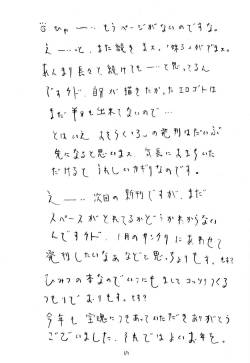 ひゃー… もうページがないのですな。
えー…と、また続きます。
あんまり長々と続けても…と思ってるん
ですけど、自分が描きたかったエロゴトは
まだ半分も出来てないので…
とはいえ
の発刊はだいぶ
先になると思います。気長におまちいた
だけると うれしいカギリなのです。
えー… 次回の新刊ですが、まだ
スペースがとれてるかどうかわからない
んですけど、1月のサンクリにあわせて
発刊したいなぁなどと思っちょります。
ひみつの本なのでいつにもましてコッソリつくる
つもりでおります。
今年も 宝魂につきあっていただきありがとう
ございました。それではよいお年を。